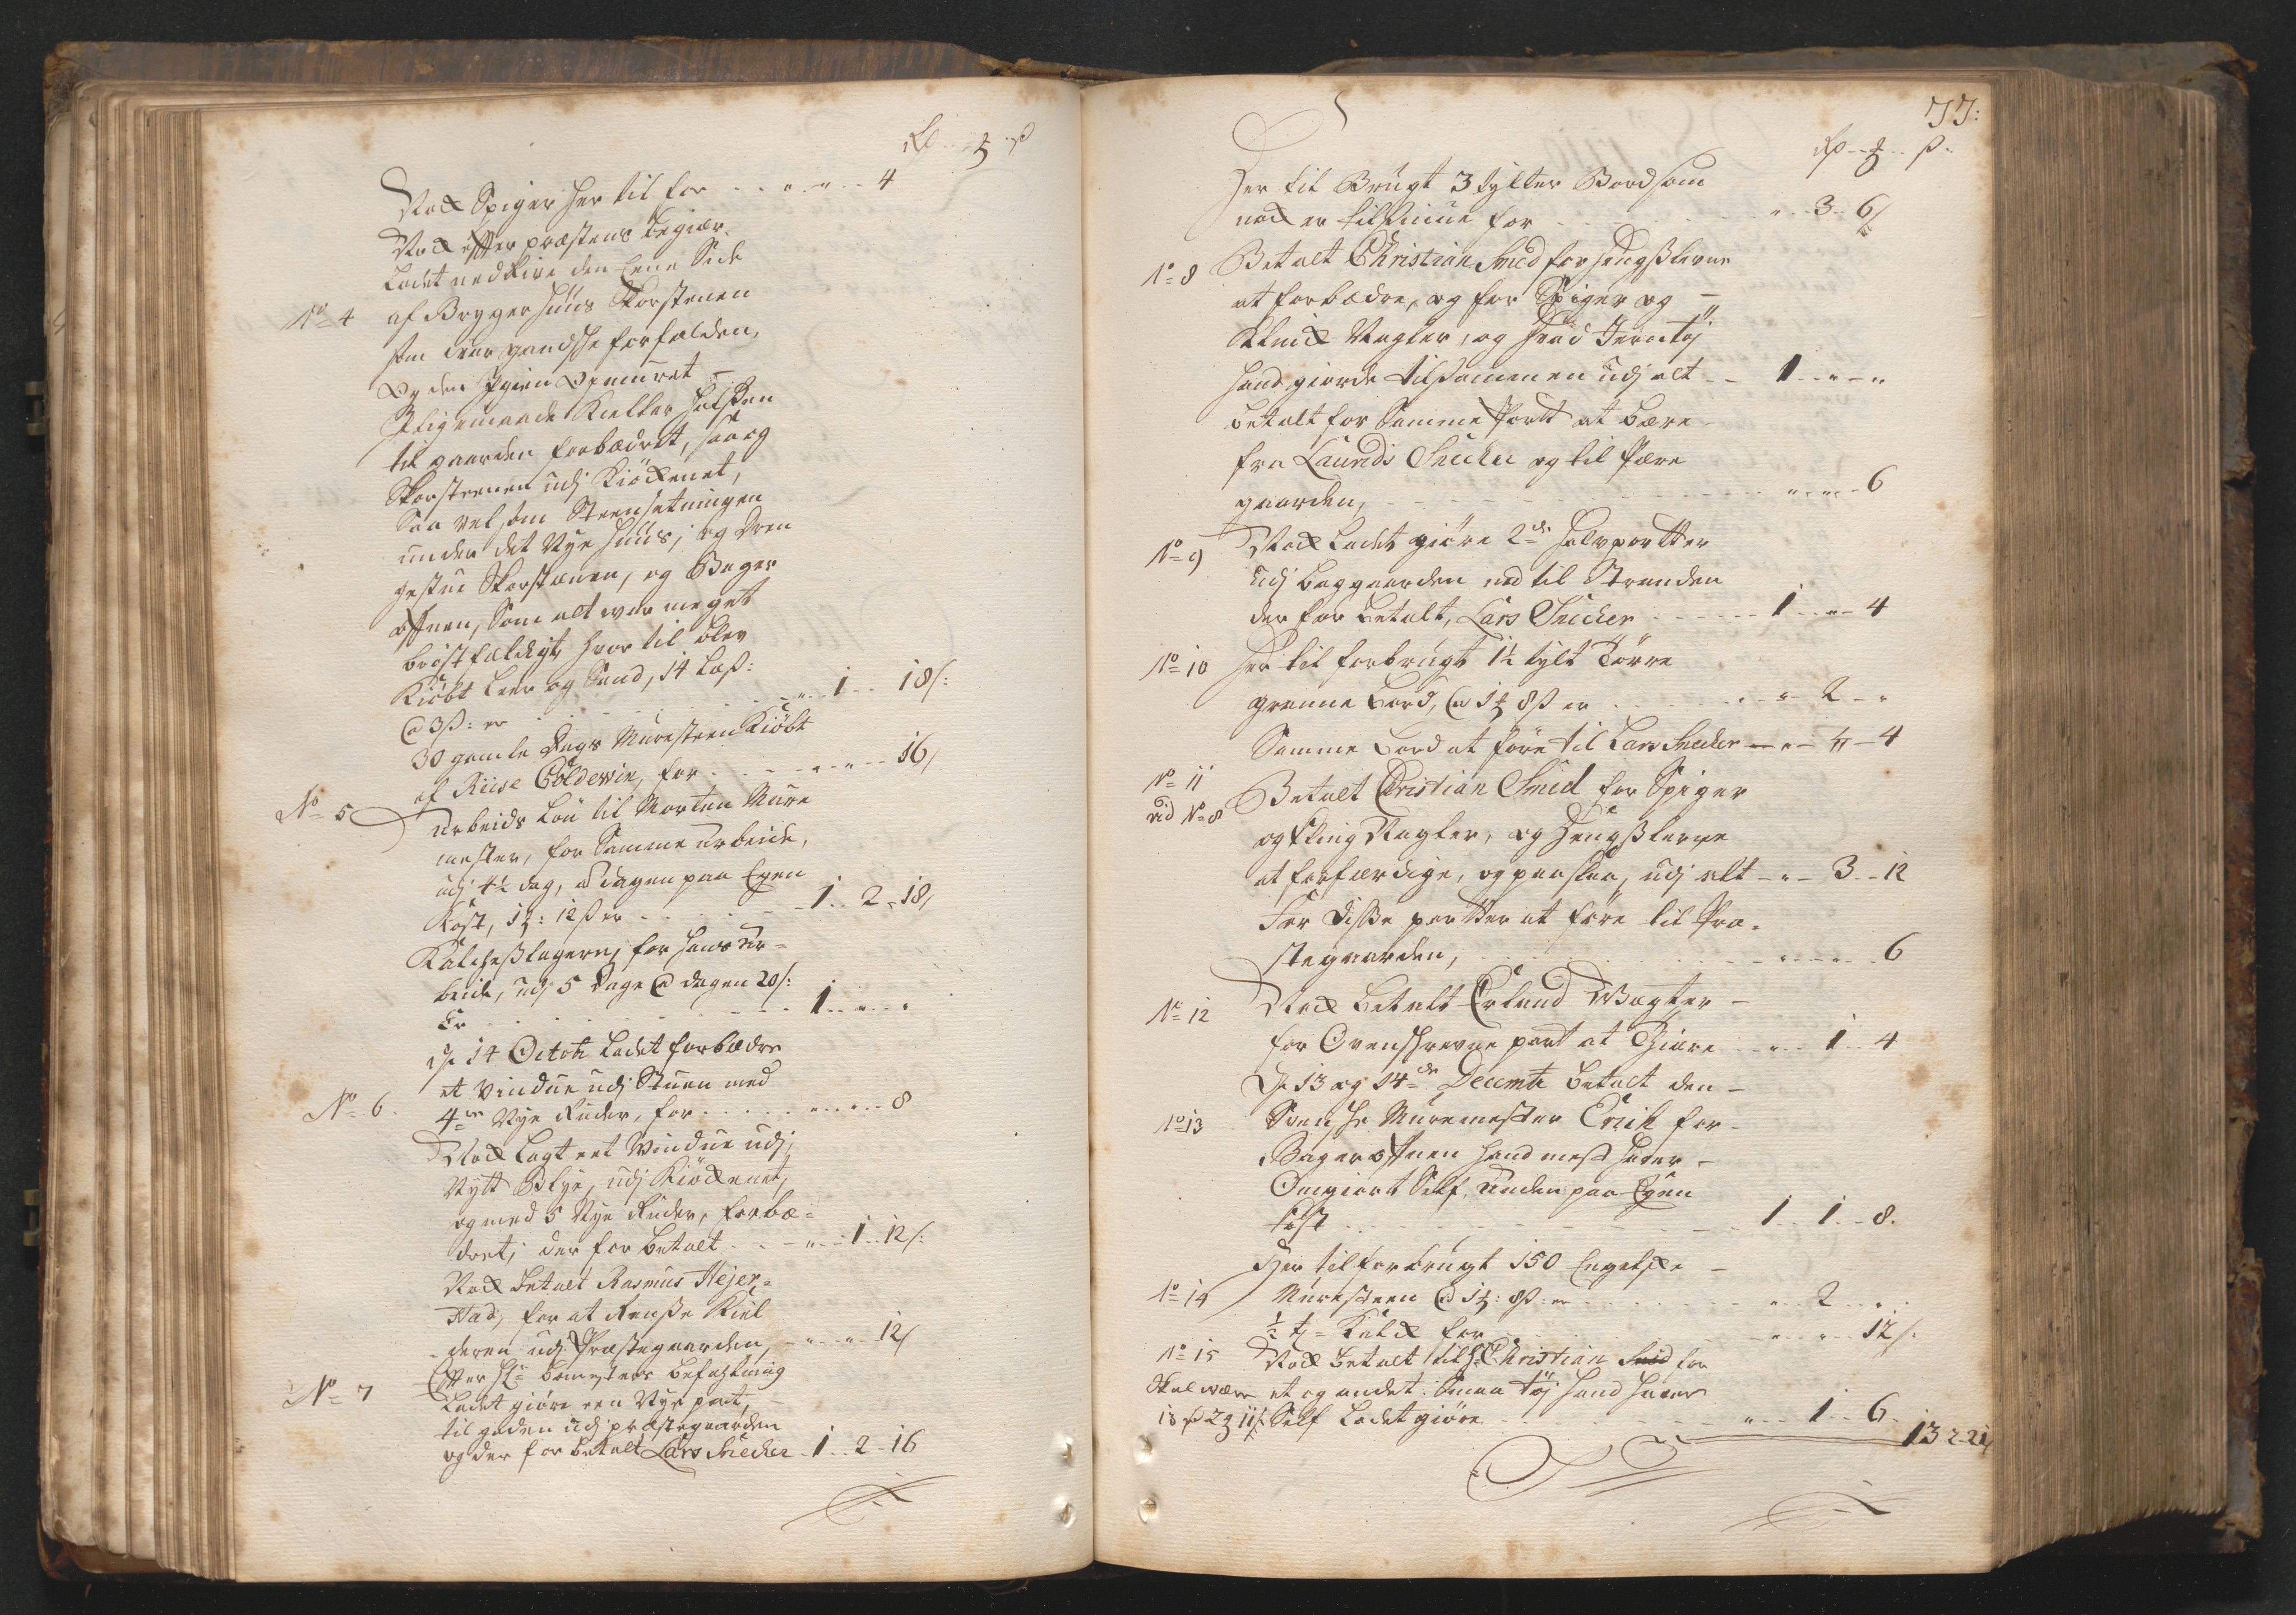 Rd ₰ ß
Nock Spiger her til for - - „ - „ - 4
Nock effter præstens begiær
Ladet nedRive den Eene Side
No 4 af Brygger huus Skorstenen
som war gandsche forfalden,
Og den Igien Opmuret -
Iligemaade Kielder halsen
til gaarden forbædret, saa og
Skorsteenen udj Kiöckenet,
Saa velsom Steensetningen
under det Nye huus, og Dren
gestue Skorstenen, og Bager
offnen, Som alt war meget
bröstfældigt, hvor til blev
Kiöbt Leer og Sand, 14 Læs:
@ 3 ß: er - „ - 1 - 18 ß:
30 gamle Dags Muresteen Kiöbt
af Riise Coldevin, for - „ - „ - 16 /
No 5 Arbeids Lön til Morten Mure
mester, for Samme arbeide,
udj 4½ dag, om dagen paa Egen
Kost, 1 ₰: 12 ß er - 1 - 2 - 18 /
Kalcheslageren, for hans Ar=
beide, udj 5 Dage @ dagen 20 ß:
Er - 1 - „ - „
d 14 Octobr Ladet forbædre
et Vindue udj Stuen med
No 6. 4re Nye Ruder, for - „ - „ - 8
Nock Lagt eet Vindue udj
Nytt Blye, udj Kiöckenet,
og med 5 Nye Ruder, forbæ=
dret, der for betalt - „ - 1 - 12 ß:
Nock betalt Rasmus Hejer=
stad, for at Rense Kiel
deren udj Præstegaarden, - „ - „ - 12 /
Effter Hr Bmesters befahlning
No 7 Ladet giöre een Nye port,
til gaden udj præstegaarden
og der for betalt Lars Snecker - 1 - 2 - 16
77:
Rd - ₰ - ß
Her til Brugt 3 tylter Bord som
nock er tilfinne for - „ - 3 - 6 /
No 8 Betalt Christian Smed for hengslerne
at forbædre, og for Spiger og -
Klinck Nagler, og hvad Jerntöj
hand giorde tilsammen udj alt - 1 - „ - „
betalt for Samme Portt at bære -
fra Laurids Snecker og til Præste
gaarden, - „ - „ - 6
No 9 Nock Ladet giöre 2de halvportter
udj baggaarden ned til Stranden
der for betalt, Lars Snecker - 1 - „ - 4
No 10 her til forbrugt 1½ tylt Törre
grenne Bord, @ 1 ₰ 8 ß er - „ - 2 - „
Samme Bord at före til Lars Snecker - „ - „ - 4
No 11 Betalt Cristian Smed for Spiger
vid No 8 og Kling Nagler, og Hengslerne
at forfærdige, og paaslaa, udj alt - „ - 3 - 12
For disse portter at före til Præ=
stegaarden, - „ - „ - 6
No 12 Nock betalt Erland Wægter -
for Ovenschrevne port at Tiære - „ - 1 - 4
d 13 og 14de Decembr betalt den -
No 13 Svensche Muremester Erich for -
Bageroffnen hand mest haver -
Omgiort Self anden paa Egen
Kost - 1 - 1 - 8.
Her til forbrugt 150 Engelsche -
No 14 Muresteen @ 1 ₰: 8 ß: er - „ - 2 - „
½ t = Kalck for - „ - „ - 12 ß:
No 15 Nock betalt til Christian Smid for
Skal være et og andet Smaa töj hand haver
13 Rd 2 ₰ 11 ß. Self Ladet giöre - „ - 1 - 6
13 2 - 21 /